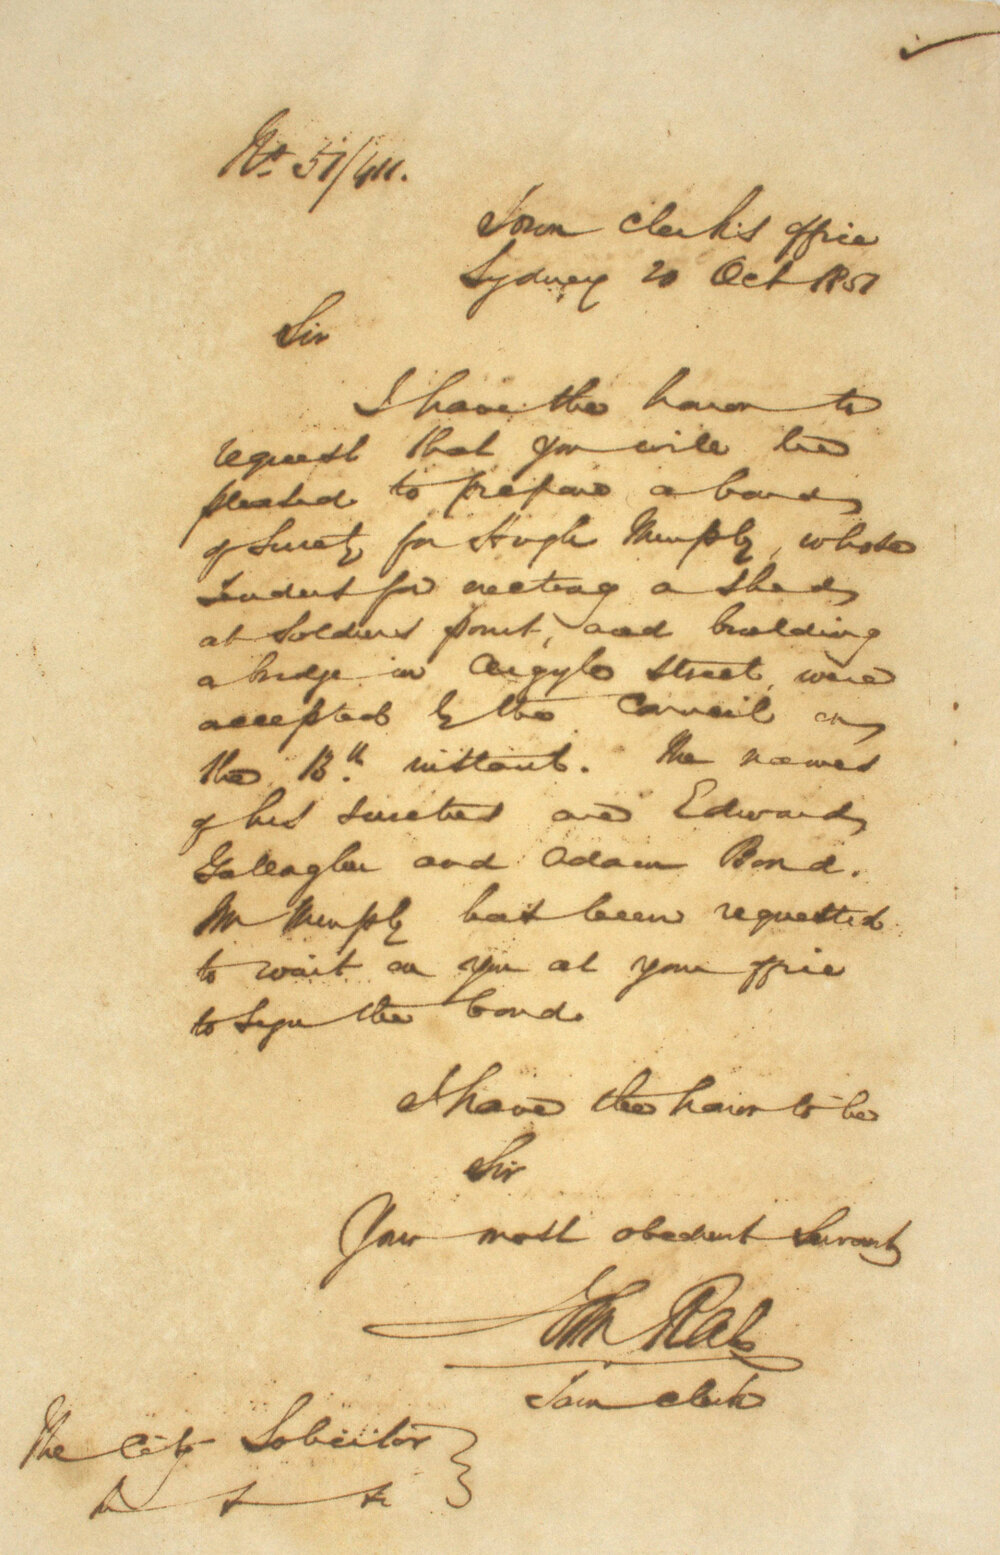 No. 57/411.
Town Clerk's office
Sydney 20 Oct 1857
Sir
I have the honor to
request that you will be
pleased to prepare a bond
of Surety for Hugh Murphy, whose
Tenders for erecting a Shed
at Soldiers point, and building
a bridge in Argyle Street, were
accepted by the Council on
the 13th instant. The names
of his sureties are Edward
Gallagher and Adam Bond.
Mr Murphy has been requested
to wait on you at your office
to Sign the bond.
I have the honor to be
Sir
Your most obedient Servant
John Rae
Town Clerk
The City Solicitor